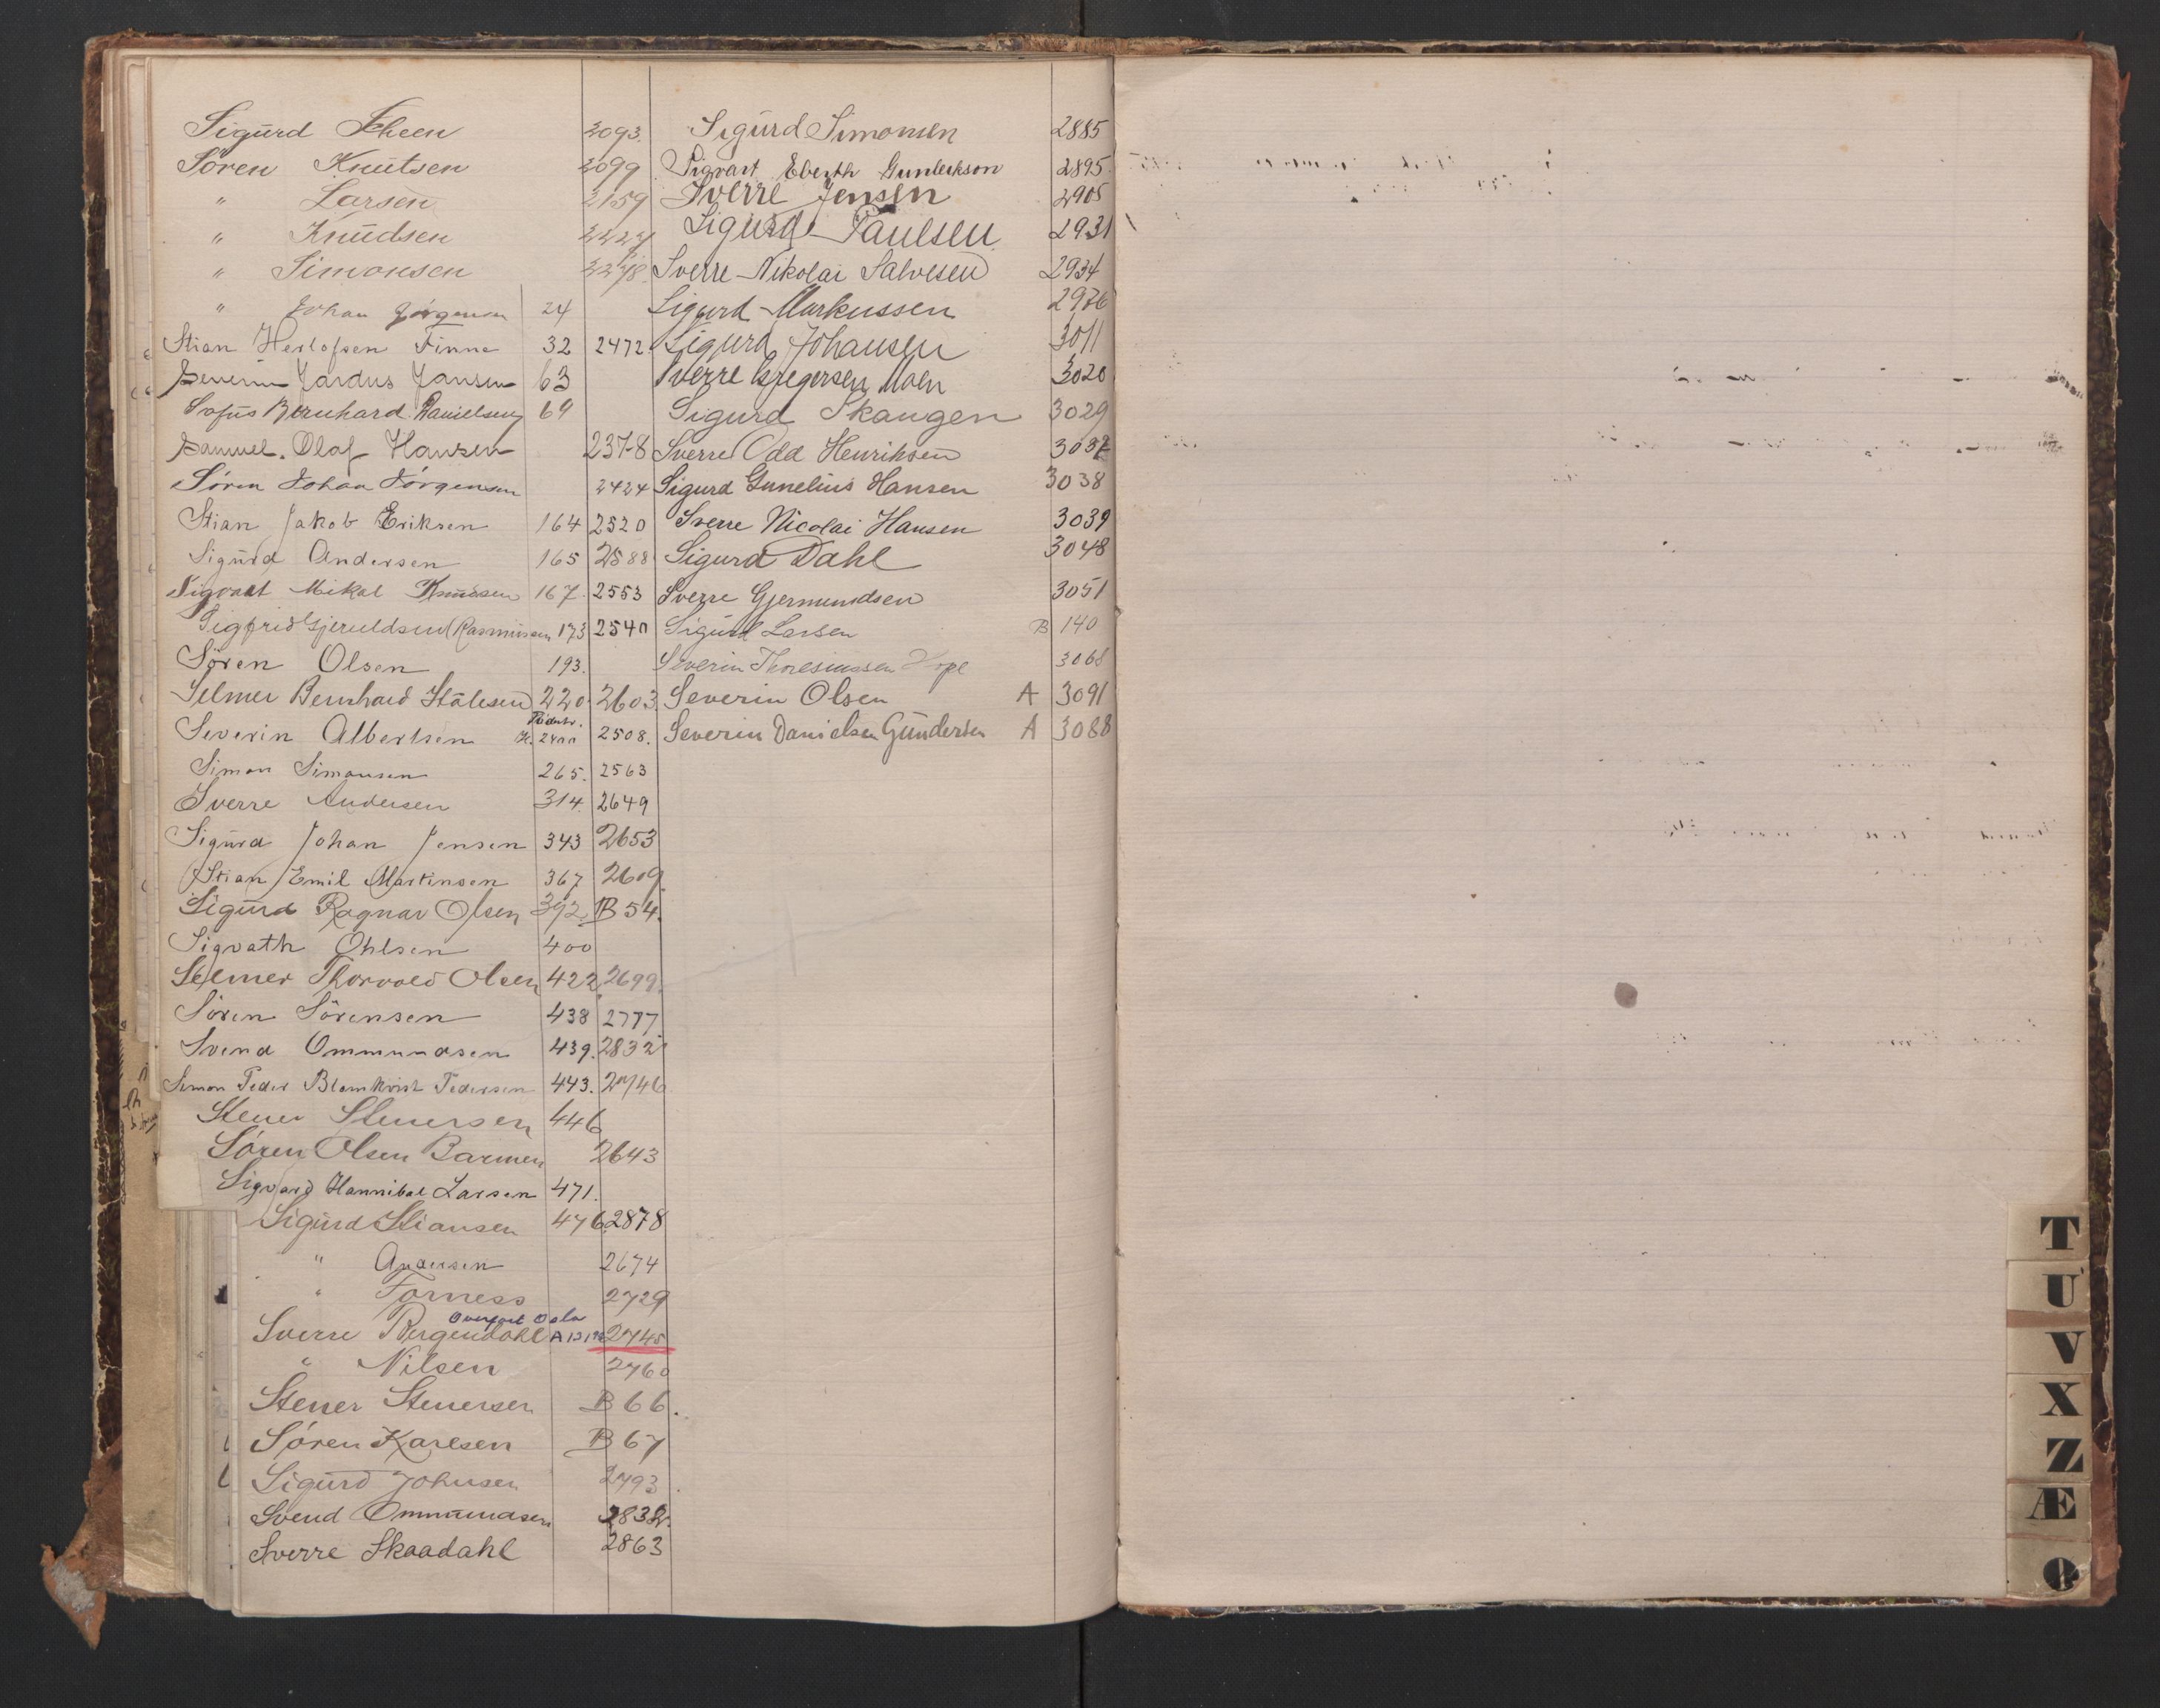 Sigurd Scheen 2093.
Sören Knutsen 2099
" Larsen 2159
" Knudsen 2227
" Simonsen 2278.
" Johan Jörgensen 24
Stian Herlofsen Finne 32 2472
Severin Jansen 63
Sofus Bernhard Danielsen 69
Samuel Olaf Hansen 2378
Sören Johan Jörgensen 2424
Stian Jakob Eriksen 164 2520
Sigurd Andersen 165 2588
Sigvart Mikal Knudsen 167. 2553
Sigfrid Gjeruldsen (Rasmussen 173 2540
Sören Olsen 193.
Selmer Bernhard Ståhlesen 220 2603
Severin Albertsen 2508.
Simon Simonsen 265. 2563
Sverre Andersen 314. 2649
Sigurd Johan Jensen 343 2653
Stian Emil Martinsen 367 2609
Sigurd Ragnar Olsen 392 B 54.
Sigvath Ohlsen 400
Selmer Thorvald Olsen 422 2699.
Sören Sörensen 438 2777
Svend Ommundsen 439. 2832
Simon Peder Blomkvist Pedersen 443. 2746
Stener Stenersen 446
Sören Olsen Barmen 2643
Sigvard Hannibal Larsen 471.
Sigurd Stiansen 476 2878
" Andersen 2674
" Torness 2729
Overført Oslo
Sverre Bergendahl 2745
" Nilsen 2760
Stener Stenersen B 66.
Sören Karlsen B 67
Sigurd Johnsen 2793.
Svend Ommundsen 2832.
Sverre Skaadahl 2863
Sigurd Simonsen 2885
Sigvart Eberth Gundersen 2895
Sverre Jensen 2905
Sigurd Paulsen 2931
Sverre Nikolai Salvesen 2934
Sigurd Markussen 2976
Sigurd Johansen 3011
Sverre Gregersen Moen 3020
Sigurd Skaugen 3029
Sverre Odd Henriksen 3037
Sigurd Gunelius Hansen 3038
Sverre Nicolai Hansen 3039
Sigurd Dahl 3048
Sverre Gjermundsen 3051
Sigurd Larsen B 140
Severin Thoresiussen Hope 3068
Severin Olsen A 3091
Severin Danielsen Gundersen A 3088
T
U
V
X
Z
Æ
Ø